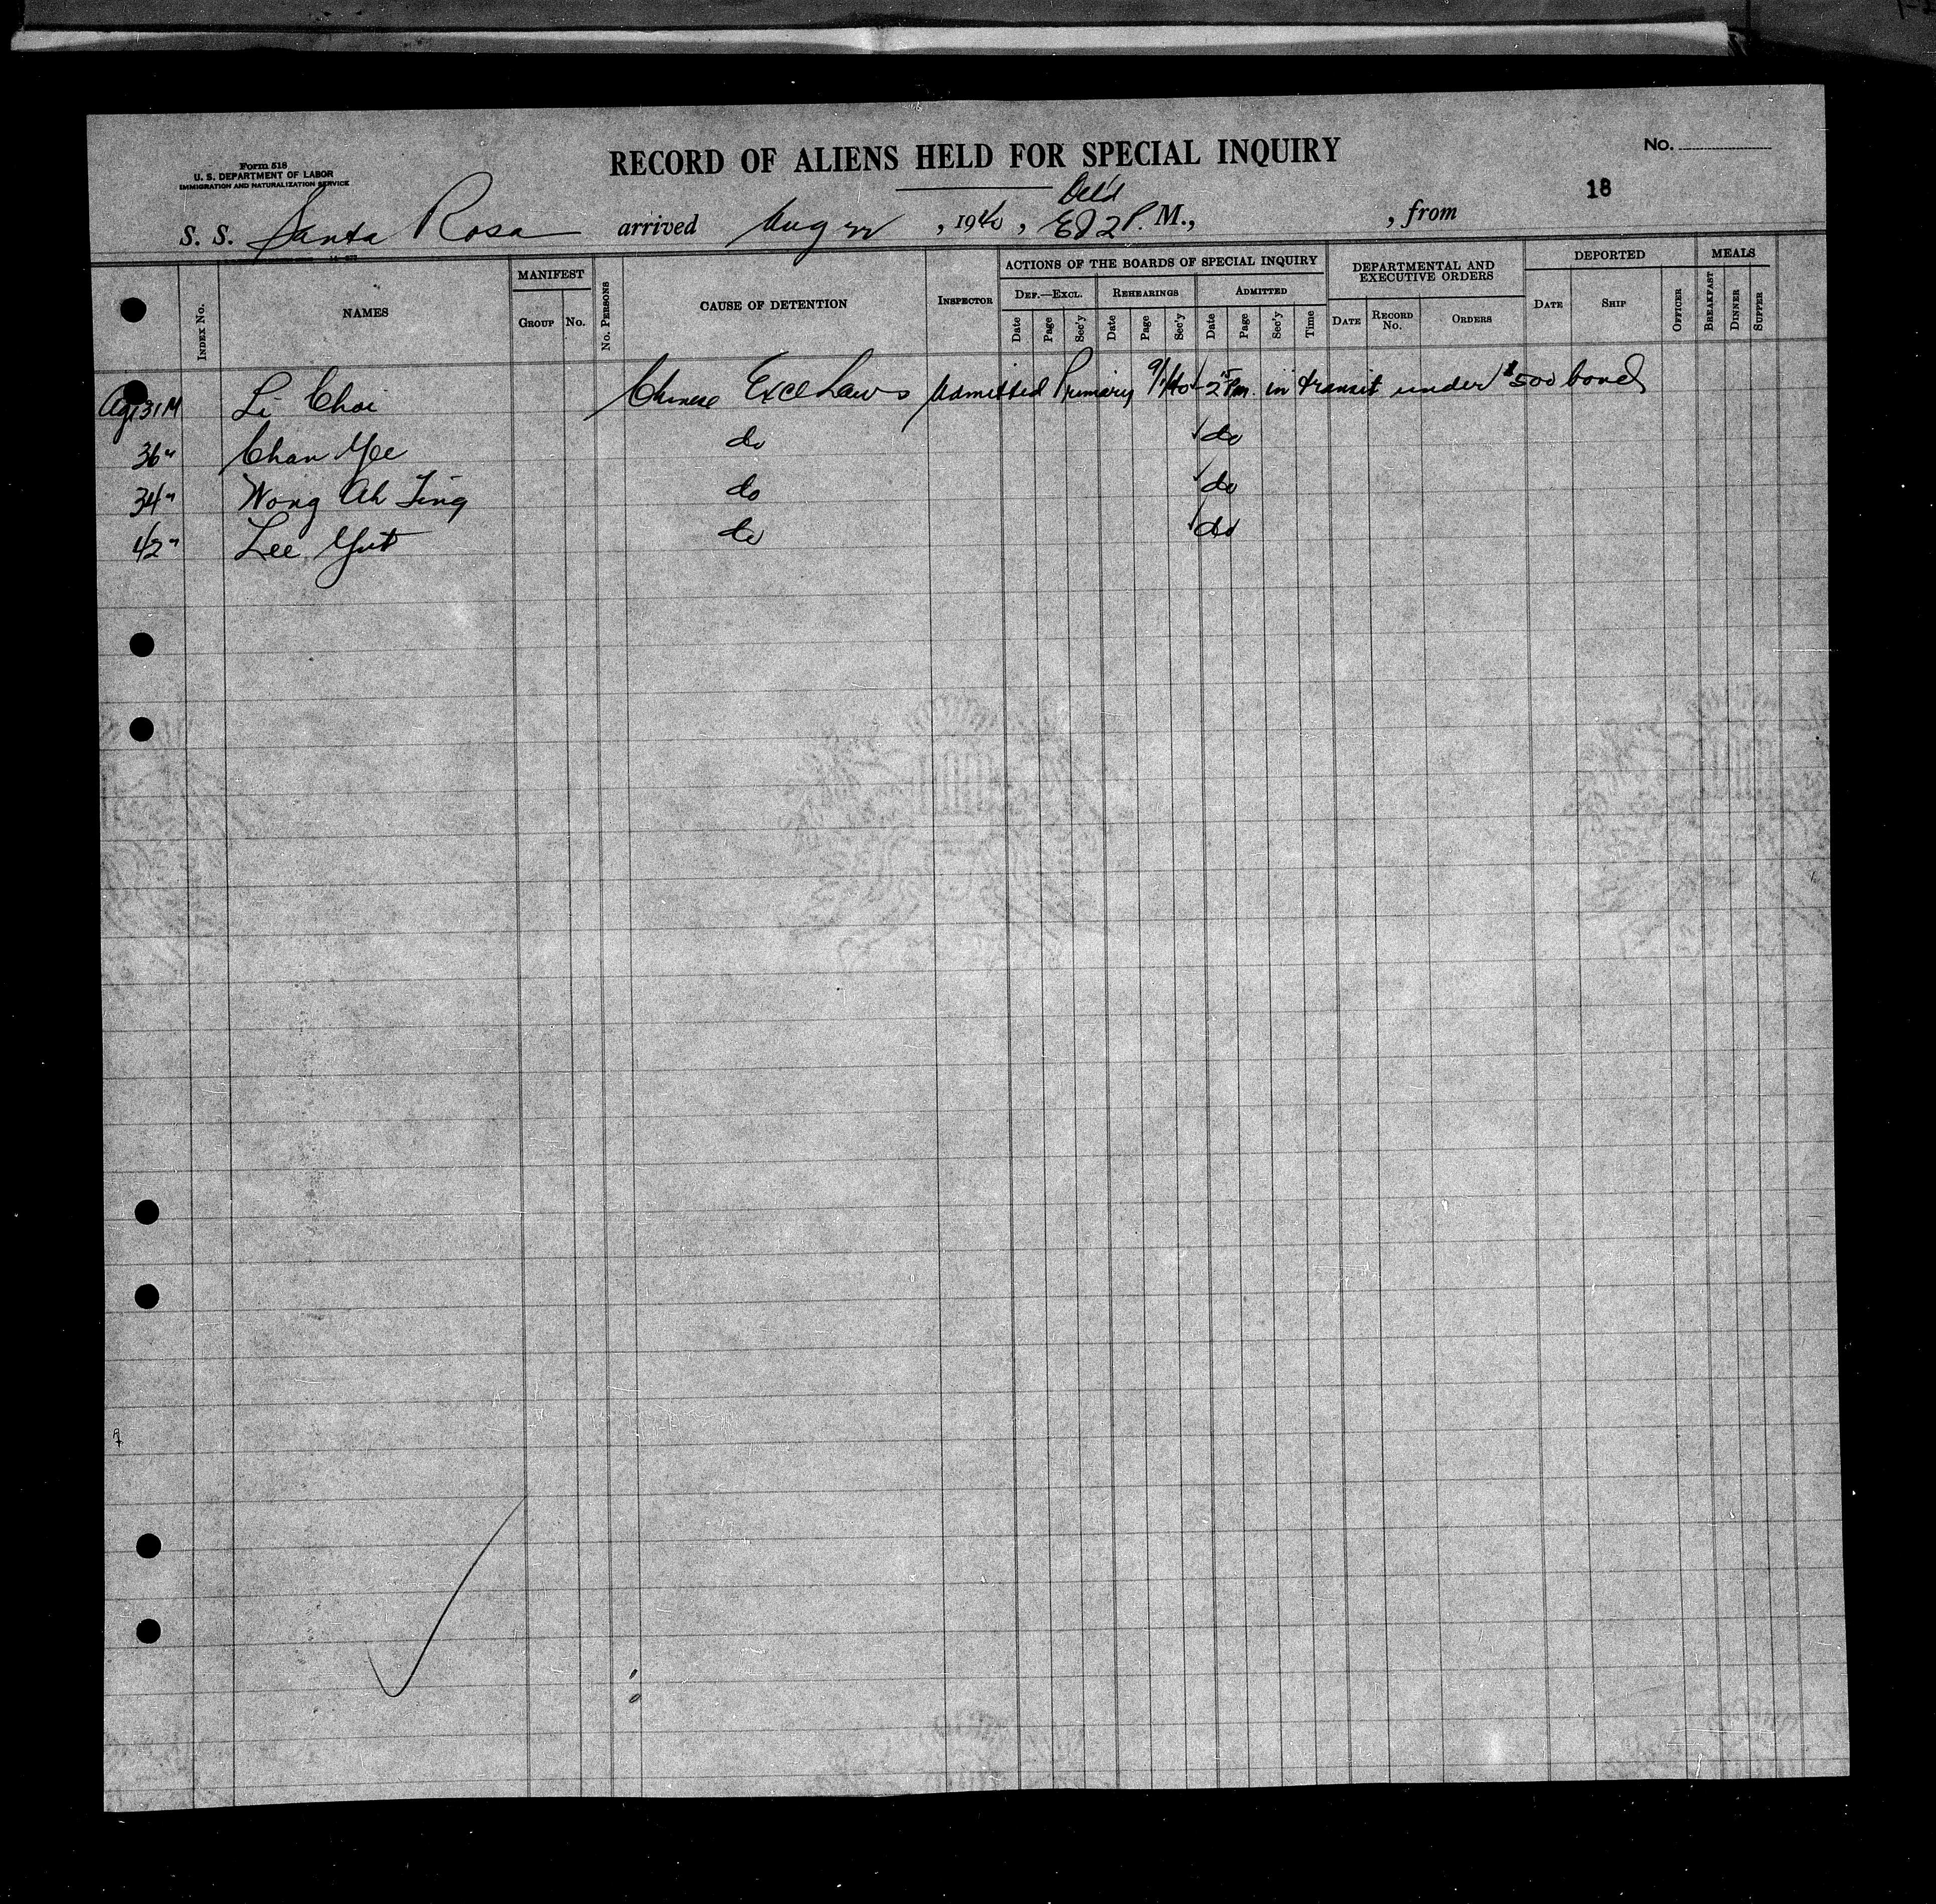 Form 518
U. S. DEPARTMENT OF LABOR
IMMIGRATION AND NATURALIZATION SERVICE
RECORD OF ALIENS HELD FOR SPECIAL INQUIRY
No.
18
Del'd
S. S. Santa Rosa arrived Aug 22, 1940, EI 2 P. M., , from
INDEX No. NAMES MANIFEST GROUP No. No. PERSONS CAUSE OF DETENTION INSPECTOR
ACTIONS OF THE BOARDS OF SPECIAL INQUIRY
DEF.—EXCL. Date Page Sec'y REHEARINGS Date Page Sec'y ADMITTED Date Page Sec'y Time
DEPARTMENTAL AND EXECUTIVE ORDERS DATE RECORD No. ORDERS
DEPORTED DATE SHIP OFFICER
MEALS BREAKFAST DINNER SUPPER
Age 31 M Li Choi Chinese Excl Laws Admitted Primary 9/1/40 - 2 15 Pm. in transit under $500 bond
36 " Chan Yee do do
34 " Wong Ah Ting do do
42 " Lee Yut do do